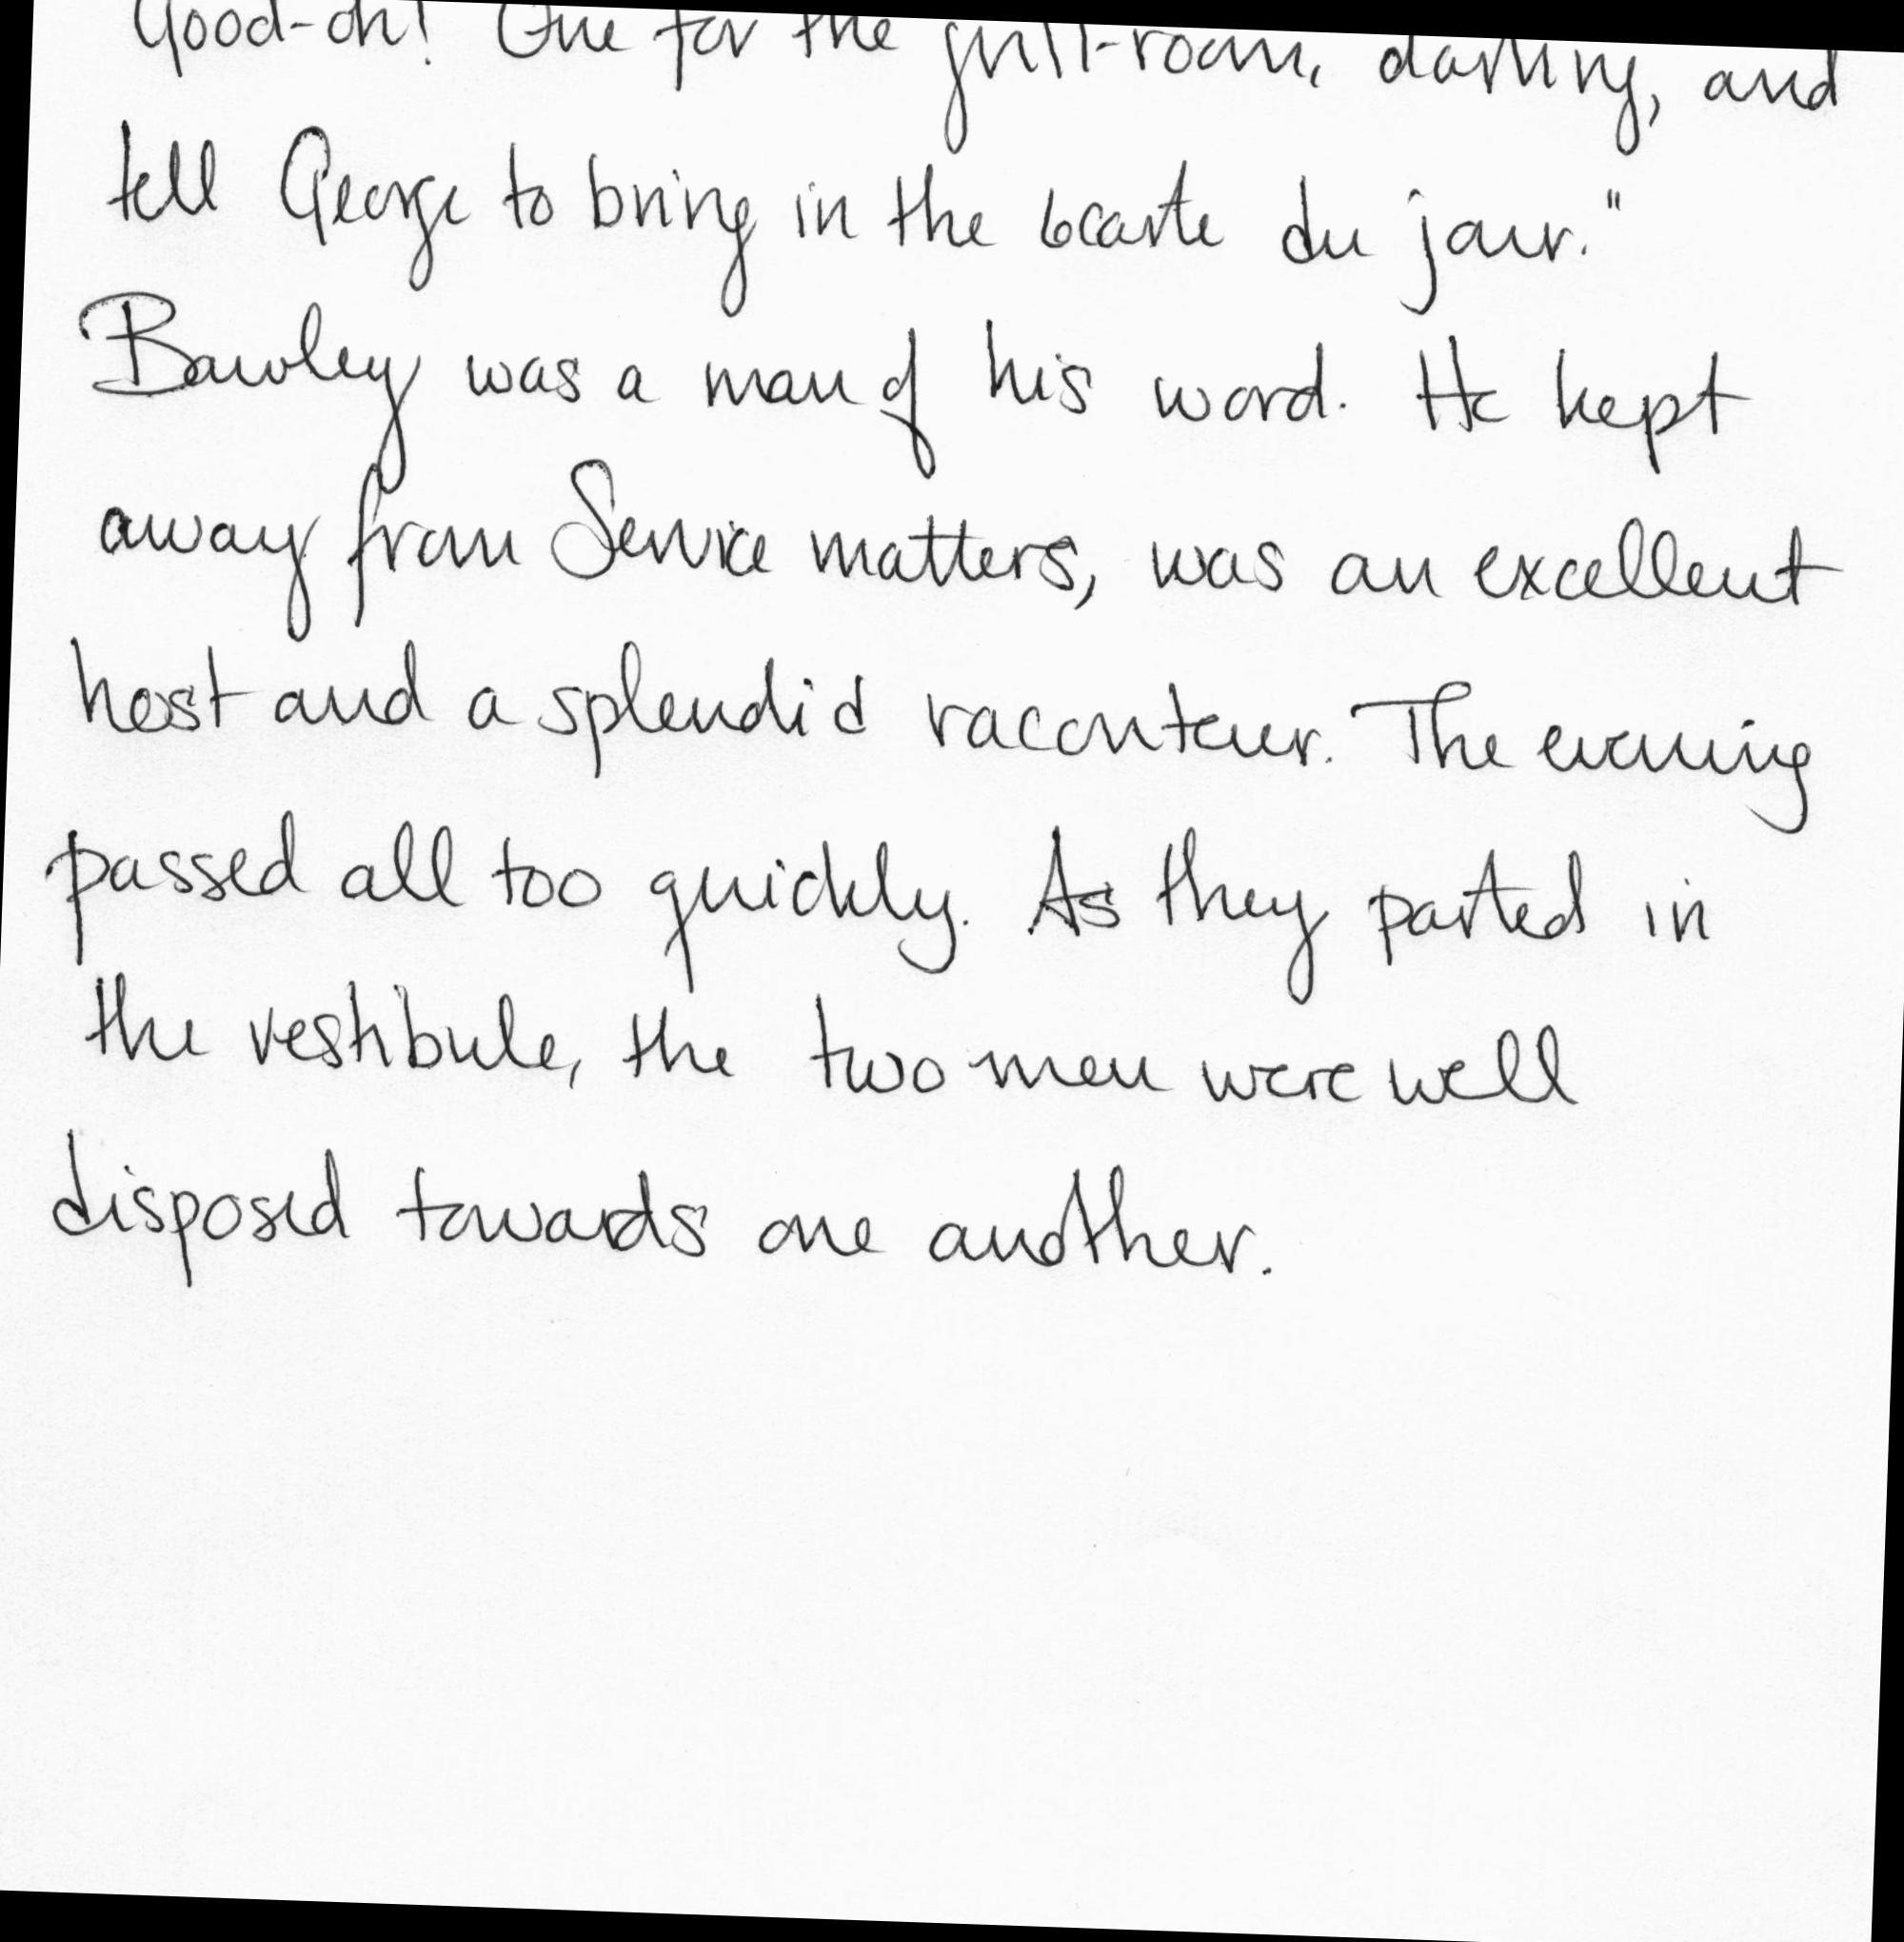 Good-oh! One for the grill-room, darling, and
tell George to bring in the 6carte du jour."
Bawley was a man of his word. He kept
away from Service matters, was an excellent
host and a splendid raconteur. The evening
passed all too quickly. As they parted in
the vestibule, the two men were well
disposed towards one another.